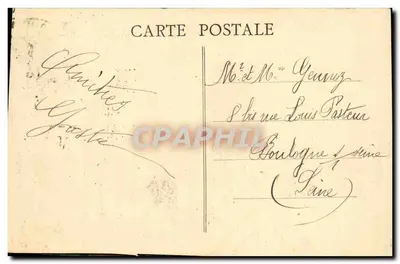 CARTE POSTALE
Amitiés
Mr et Mme
8 bis rue Louis Pasteur
Boulogne s/ seine
(Seine)
CPAPHIL